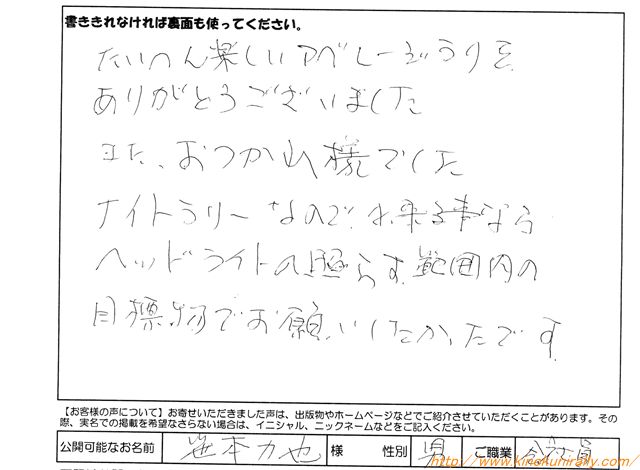 書ききれなければ裏面も使ってください。
たいへん楽しいアベレージラリーを
ありがとうございました
また、おつかれ様でした
ナイトラリーなので、出来る事なら
ヘッドライトの照らす範囲内の
目標物でお願いしたかったです。
【お客様の声について】お寄せいただきました声は、出版物やホームページなどでご紹介させていただくことがあります。その
際、実名での掲載を希望なさらない場合は、イニシャル、ニックネームなどをご記入ください。
公開可能なお名前 笹本力也 様 性別 男 ご職業 会社員
http://www.kinokunirally.com/